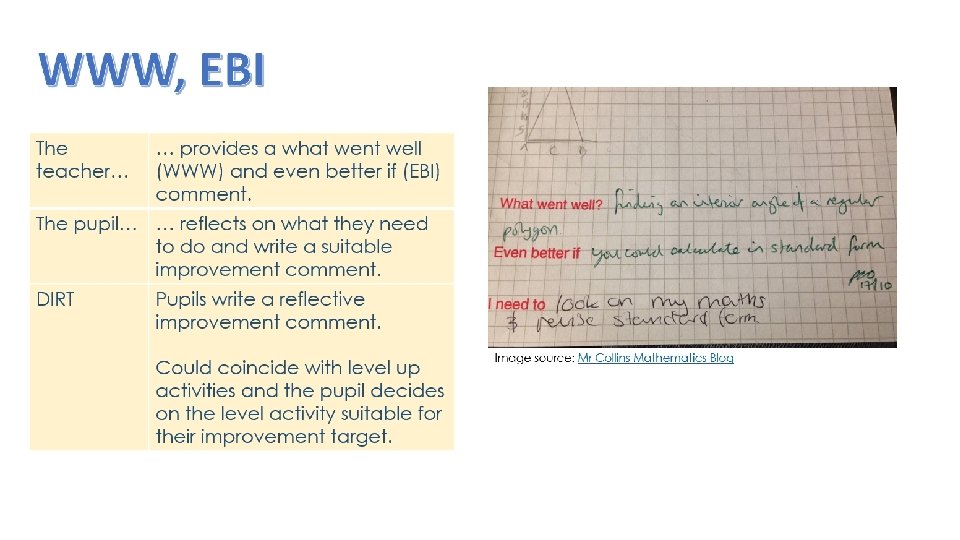 WWW, EBI
The teacher…
… provides a what went well
(WWW) and even better if (EBI)
comment.
The pupil…
… reflects on what they need
to do and write a suitable
improvement comment.
DIRT
Pupils write a reflective
improvement comment.
Could coincide with level up
activities and the pupil decides
on the level activity suitable for
their improvement target.
A C B
What went well? finding an interior angle of a regular
polygon.
Even better if you could calculate in standard form
17/10
I need to look on my maths
& revise standard form
Image source: Mr Collins Mathematics Blog